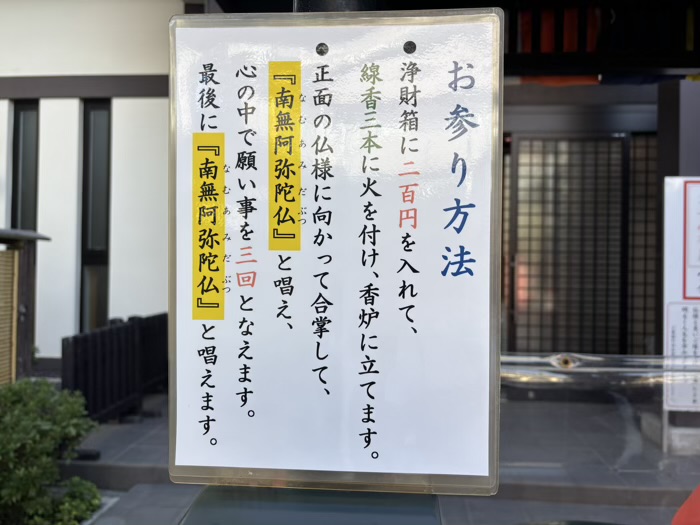 お参り方法
●浄財箱に二百円を入れて、
線香三本に火を付け、香炉に立てます。
●正面の仏様に向かって合掌して、
『南無阿弥陀仏』と唱え、
なむあみだぶつ
心の中で願い事を三回となえます。
最後に『南無阿弥陀仏』と唱えます。
なむあみだぶつ